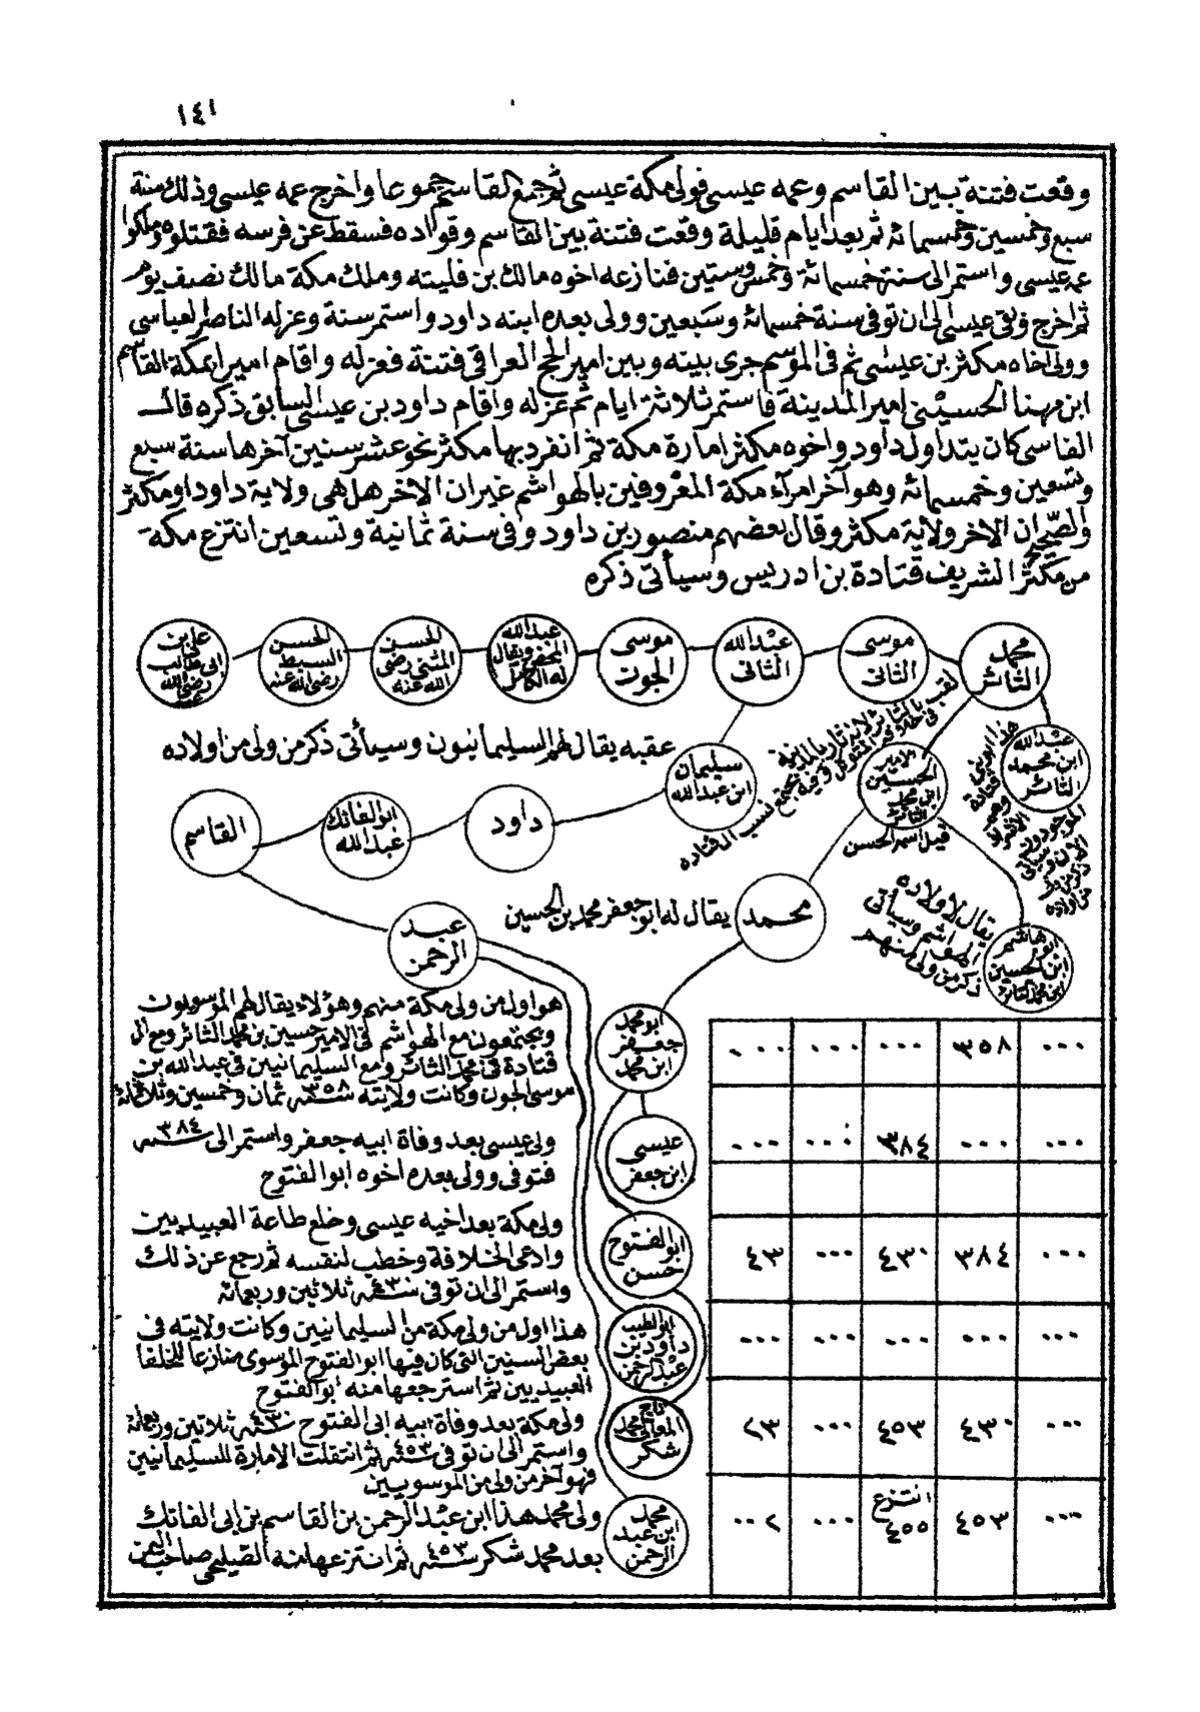 ١٤١
وقعت فتنة بين القاسم وعمه عيسى فولى مكة عيسى ثم جمع القاسم جموعا واخرج عمه عيسى وذلك سنة
سبع وخمسين وخمسمائة ثم بعد ايام قليلة وقعت فتنة بين القاسم وقواده فسقط عن فرسه فقتلوه وملكوا
عمه عيسى واستمر الى سنة خمسمائة وخمس وستين فنازعه اخوه مالك بن فليته وملك مكة مالك نصف يوم
ثم اخرج وبقى عيسى الى ان توفى سنة خمسمائة وسبعين وولى بعده ابنه داود واستمر سنة وعزله الناصر العباسى
وولى اخاه مكثر بن عيسى ثم فى الموسم جرى بينه وبين امير الحج العراقى فتنة فعزله واقام اميرا بمكة القاسم
ابن مهنا الحسينى امير المدينة فاستمر ثلاثة ايام ثم عزله واقام داود بن عيسى السابق ذكره قال
الفاسى كان يتداول داود واخوه مكثر امارة مكة ثم انفرد بها مكثر نحو عشر سنين آخرها سنة سبع
وتسعين وخمسمائة وهو آخر امرآء مكة المعروفين بالهواشم غير ان الاخر هل هى ولاية داود او مكثر
والصحيح ان الاخر ولاية مكثر وقال بعضهم منصور بن داود وفى سنة ثمانية وتسعين انتزع مكة
من مكثر الشريف قتادة بن ادريس وسيأتى ذكره
محمد الثائر
موسى الثانى
عبد الله الثانى
موسى الجون
عبد الله المحض ويقال له الكامل
الحسن المثنى رضى الله عنه
الحسن السبط رضى الله عنه
على بن ابى طالب رضى الله عنه
لقب بالثائر لانه ثار بالمدينة
فى خلافة المتوكل وفيه يجتمع نسب آل قتاده
عبد الله ابن محمد الثائر
الامير الحسين ابن محمد الثائر
قيل اسمه الحسن
سليمان ابن عبد الله
عقبه يقال لهم السليمانيون وسيأتى ذكر من ولى من اولاده
داود
ابو الفاتك عبد الله
القاسم
محمد
يقال له ابو جعفر محمد بن الحسين
ابو هاشم ابن الحسين ابن محمد الثائر
يقال لاولاده
الهواشم وسيأتى
ذكر من ولى منهم
عبد الرحمن
هو اول من ولى مكة منهم وهؤلاء يقال لهم الموسويون
ويجتمعون مع الهواشم فى الامير حسين بن محمد الثائر ومع آل
قتادة فى محمد الثائر ومع السليمانيين فى عبد الله بن
موسى الجون وكانت ولايته سنة ٣٥٨ ثمان وخمسين وثلاثمائة
ابو محمد جعفر ابن محمد
٠٠٠ ٣٥٨ ٠٠٠ ٠٠٠ ٠٠٠
ولى عيسى بعد وفاة ابيه جعفر واستمر الى سنة ٣٨٤
فتوفى وولى بعده اخوه ابو الفتوح
عيسى ابن جعفر
٠٠٠ ٠٠٠ ٣٨٤ ٠٠٠ ٠٠٠
ولى مكة بعد اخيه عيسى وخلع طاعة العبيديين
وادعى الخلافة وخطب لنفسه ثم رجع عن ذلك
واستمر الى ان توفى سنة ٤٣٠ ثلاثين وربعمائة
ابو الفتوح حسن
٠٠٠ ٣٨٤ ٤٣٠ ٠٠٠ ٤٣
هذا اول من ولى مكة من السليمانيين وكانت ولايته فى
بعض السنين التى كان فيها ابو الفتوح الموسوى منازعا للخلفا
العبيديين ثم استرجعها منه ابو الفتوح
ابو الطيب داود بن عبد الرحمن
٠٠٠ ٠٠٠ ٠٠٠ ٠٠٠ ٠٠٠
ولى مكة بعد وفاة ابيه ابى الفتوح سنة ٤٣٠ ثلاثين وربعمائة
واستمر الى ان توفى سنة ٤٥٣ ثم انتقلت الامارة للسليمانيين
فهو آخر من ولى من الموسويين
تاج المعالى محمد شكر
٠٠٠ ٤٣٠ ٤٥٣ ٠٠٠ ٢٣
ولى محمد هذا ابن عبد الرحمن بن القاسم بن ابى الفاتك
بعد محمد شكر سنة ٤٥٣ ثم انتزعها منه الصليحى صاحب اليمن
محمد ابن عبد الرحمن
٠٠٠ ٤٥٣ انتزع ٤٥٥ ٠٠٠ ٠٠٢